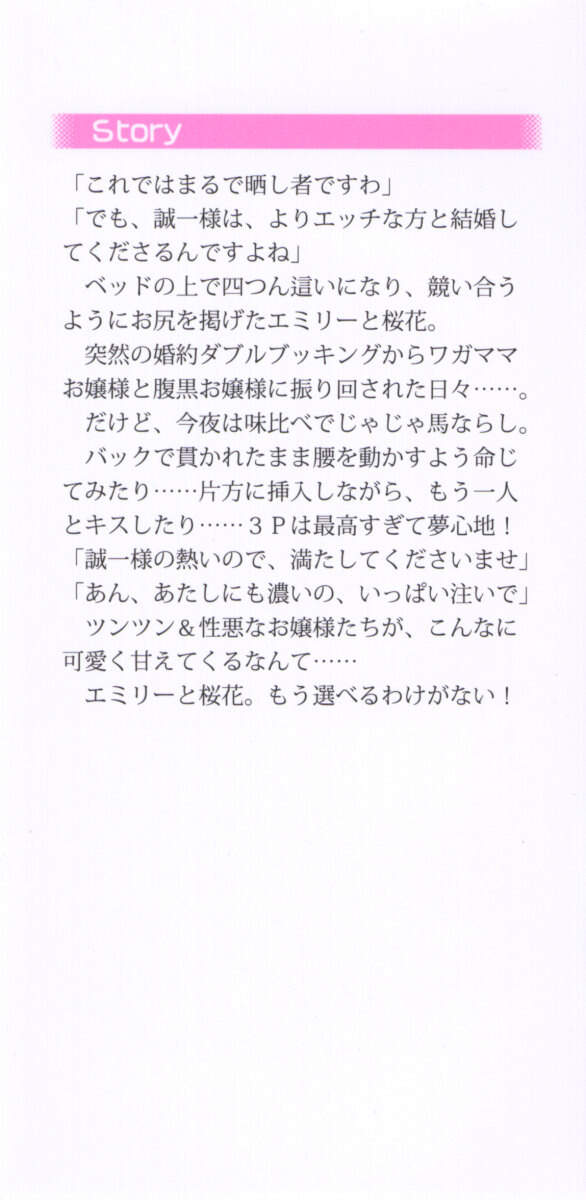 Story
「これではまるで晒し者ですわ」
「でも、誠一様は、よりエッチな方と結婚し
てくださるんですよね」
　ベッドの上で四つん這いになり、競い合う
ようにお尻を掲げたエミリーと桜花。
　突然の婚約ダブルブッキングからワガママ
お嬢様と腹黒お嬢様に振り回された日々……。
　だけど、今夜は味比べでじゃじゃ馬ならし。
　バックで貫かれたまま腰を動かすよう命じ
てみたり……片方に挿入しながら、もう一人
とキスしたり……３Ｐは最高すぎて夢心地！
「誠一様の熱いので、満たしてくださいませ」
「あん、あたしにも濃いの、いっぱい注いで」
　ツンツン＆性悪なお嬢様たちが、こんなに
可愛く甘えてくるなんて……
　エミリーと桜花。もう選べるわけがない！